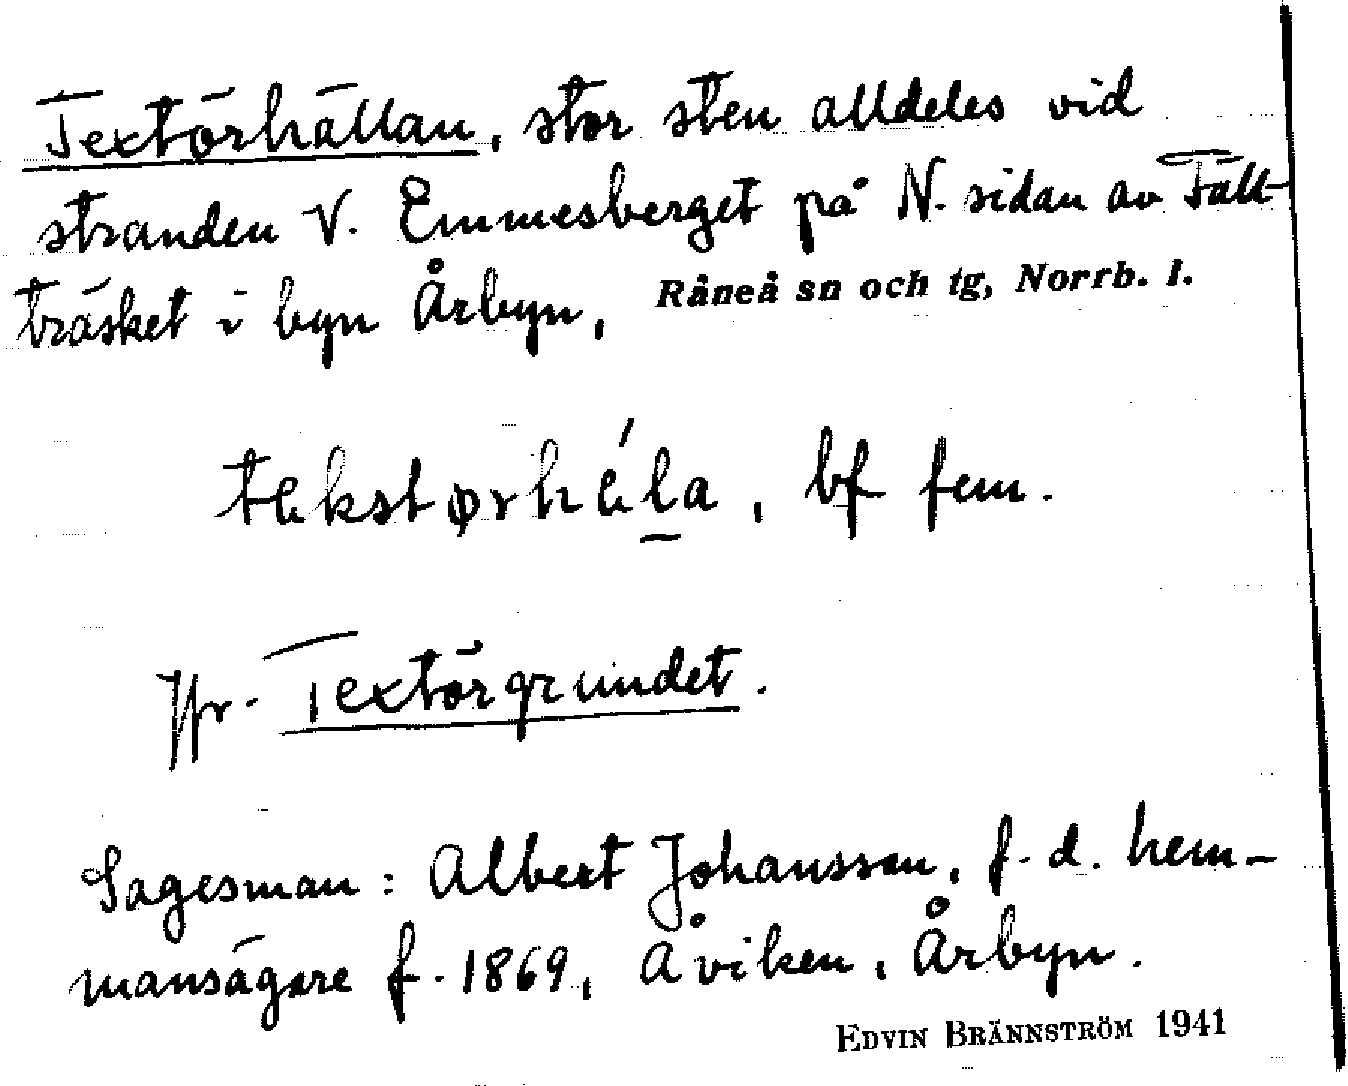 Textörhällan, stor sten alldeles vid
stranden V. Emmesberget på N. sidan av Tält-
träsket i byn Årbyn, Råneå sn och tg, Norrb. l.
tɛkstørhɛ́l̲a, bf fem.
Jfr. Textörgrundet.
Sagesman: Albert Johansson, f.d. hem-
mansägare f. 1869, Åviken, Årbyn.
EDVIN BRÄNNSTRÖM 1941